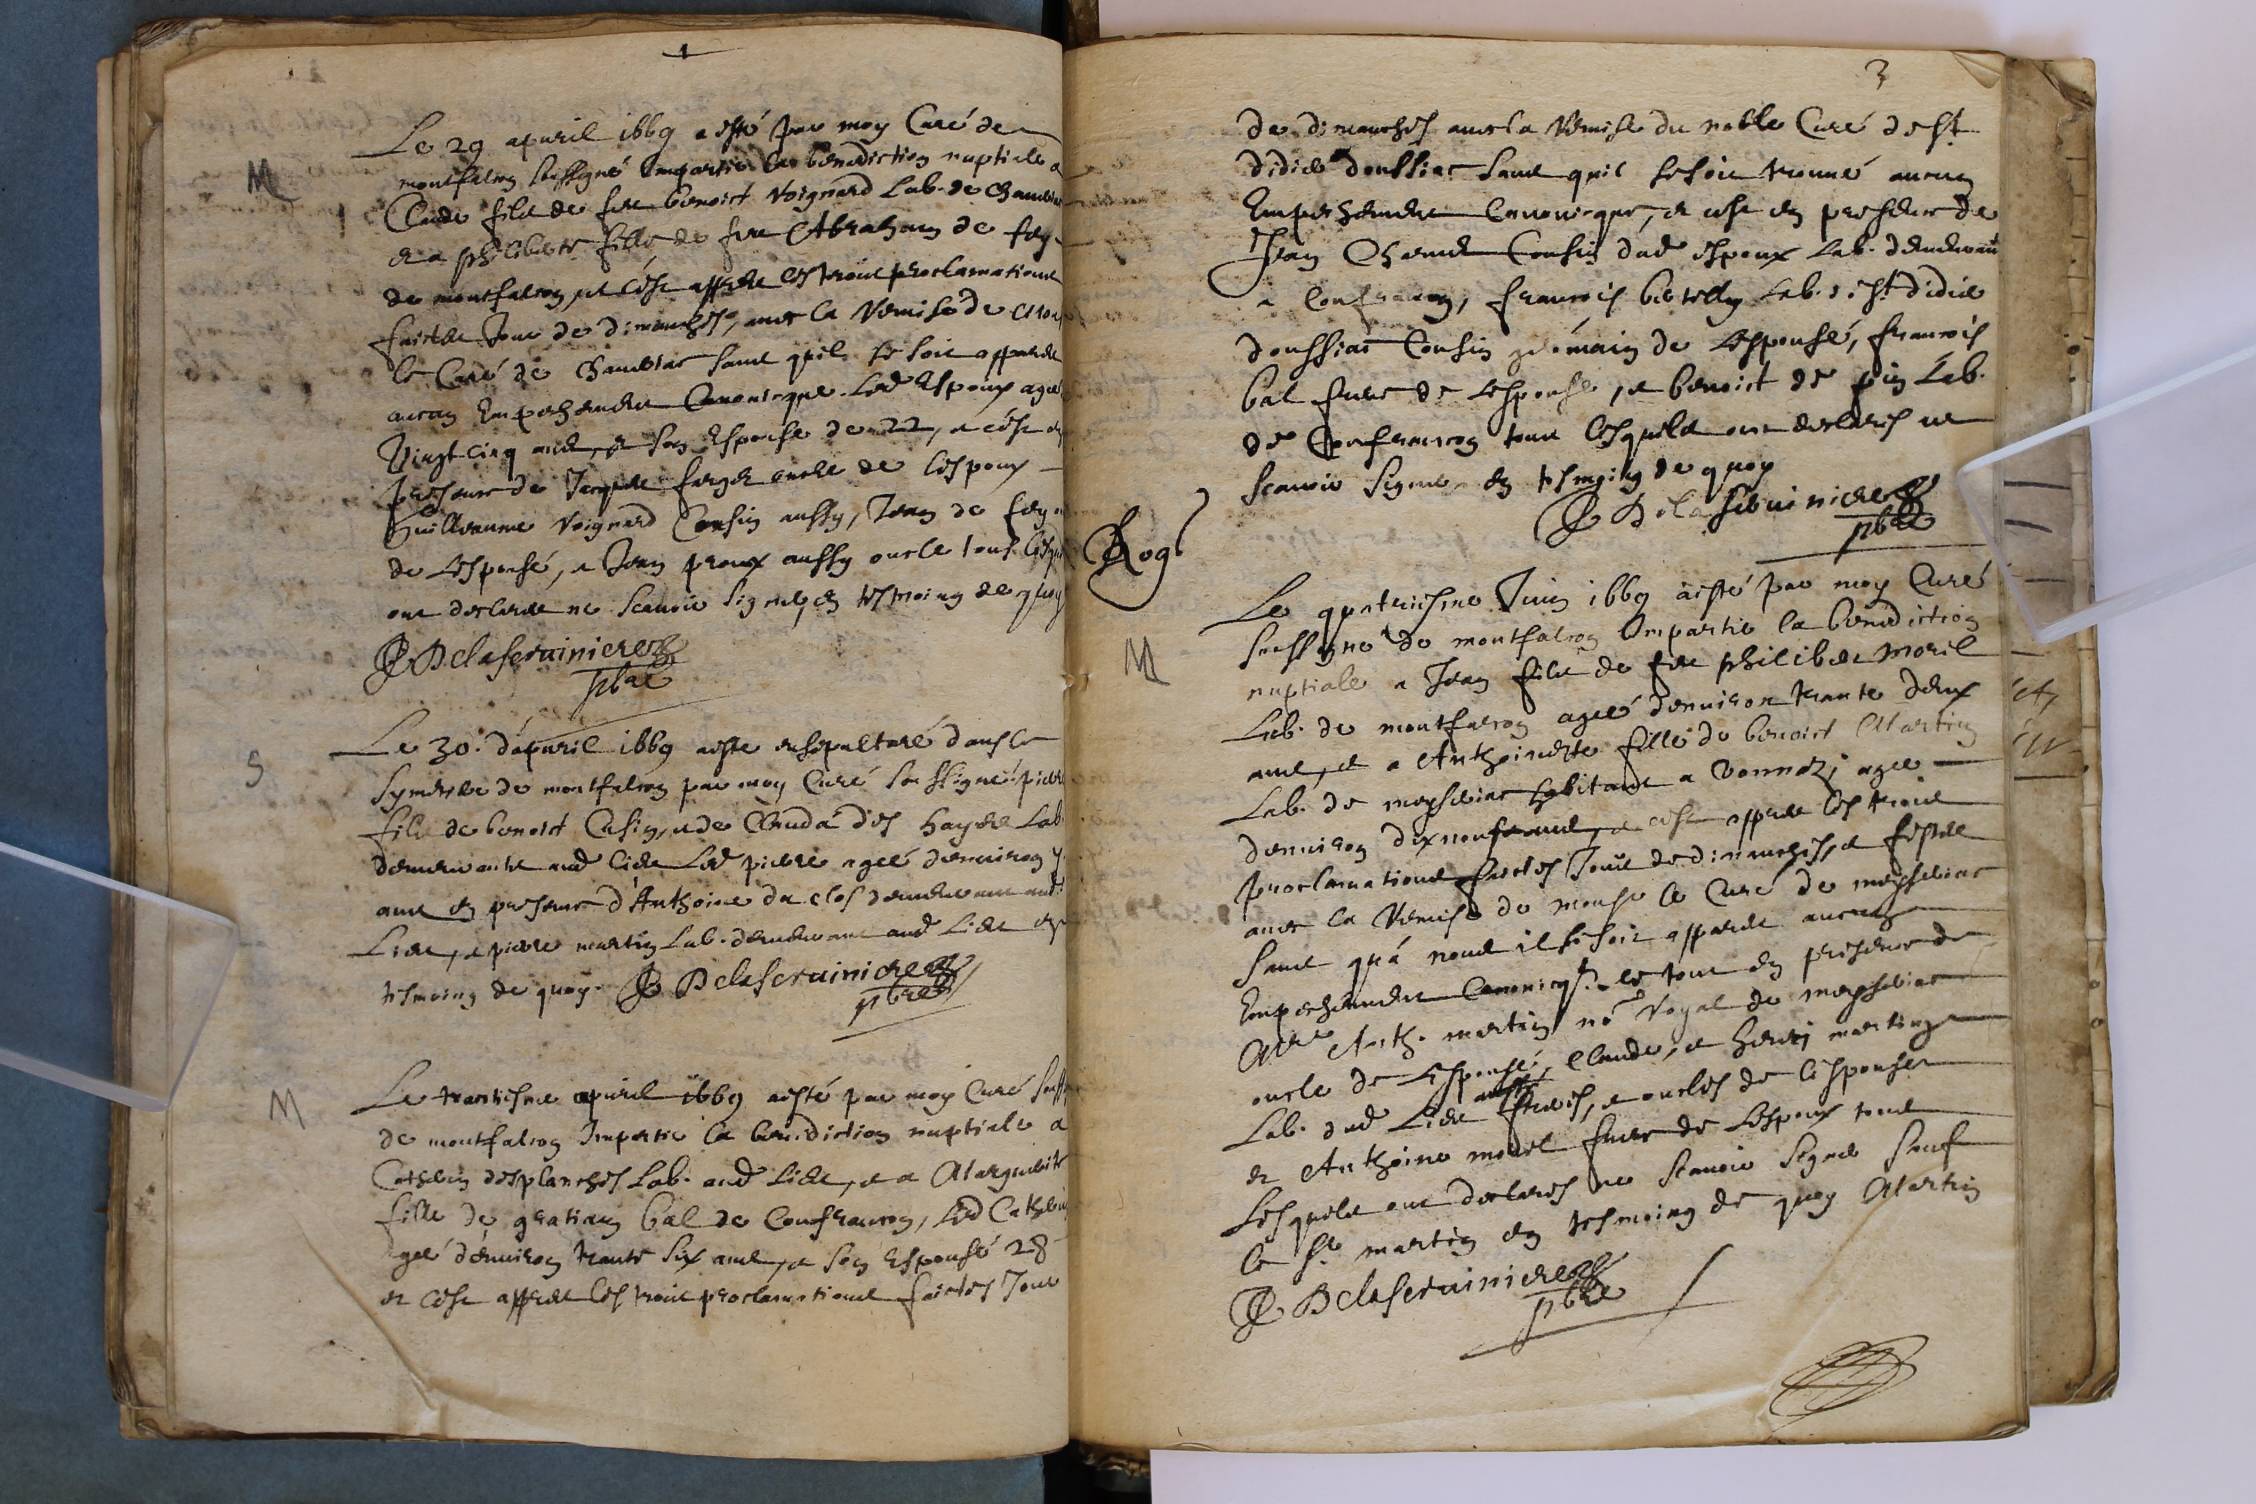 1
Le 29 apuril 1669 a esté par moy Curé de
M
montfalcon soussigné Impartie la benediction nuptiale a
Claude filz de feu benoist Voignard Lab. de Chaueiriat
et a philiberte fille de feu Abraham de fey
de montfalcon, et c'est appres les trois proclamations
faictes Jour de dimanches, auec la Remise de
le Curé de Chaueriat sans quil se soit apparu
aucun Empeschement Canonicque. Led Espoux agé
Vingt cinq ans, et son Espouse de 22, et c'est en
presence de Jacques oncle de l'espoux
Guilleaume Voignard Cousin aussy, Jean de fey
de l'espouse, et Jean proux aussy oncle tous lesquels
ont declarés ne scauoir signer, en tesmoing de quoy
Delaseruiniere
pbre
S
Le 30. d'apuril 1669 a esté ensepulturé dans le
Symetiere de montfalcon par moy Curé soussigné pierre
filz de benoist Cusin, et de Clauda des hayes Lab.
demeurants aud lieu Led pierre agé d'enuiron
ans en presence d'Anthoine du clos demeurant aud
Lieu, et pierre martin Lab. demeurant aud Lieu en
tesmoing de quoy. Delaseruiniere
pbre
M
Le trantiesme apuril 1669 a esté par moy Curé souss
de montfalcon Impartie la benediction nuptiale a
Cathelin desplanches Lab. aud Lieu, et a Marguerite
fille de gratian bal de Confrancon, Led Cathelin
agé d'enuiron trante six ans, et son Espouse 28
et c'est appres les trois proclamations faictes Jour
3
de dimanches auec la Remise du noble Curé de st
didier doussiat sans quil se soit trouué aucun
Empeschement Canonicque, et c'est en presence de
Jean Cousin dud espoux Lab. demeurant
a Confrancon, francois Lab. st didier
doussiat Cousin germain de l'espouse, francois
bal frere de l'espouse, et benoist de pin Lab.
de Confrancon tous lesquels ont declarés ne
scauoir signer en tesmoing de quoy
Delaseruiniere
pbre
Rog
Le quatriesme Juin 1669 a esté par moy Curé
M
soussigné de montfalcon Impartie la benediction
nuptiale a Jean filz de feu philibert morel
Lab. de montfalcon ageé d'enuiron trante deux
ans, et a Anthoinette fille de benoist Martin
Lab. de meyseriat habitant a Vonnaz; agee
d'enuiron dix neuf ans, et c'est appres les trois
proclamations faictes Jour de dimanches, et festes
auec la Remise de monsr le Curé de meyseriat
sans qu'a nous il se soit apparu aucung
Empeschement Canonicq. et le tout en presence de
Mre Anth. martin nore Royal de meyseriat
oncle de l'espouse, Claude, et henry martin
Lab. dud Lieu aussy freres, et oncles de l'espouse
et Anthoine morel frere de l'espoux tous
Lesquels ont declarés ne scauoir signer sauf
le sr martin en tesmoing de quoy Martin
Delaseruiniere
pbre